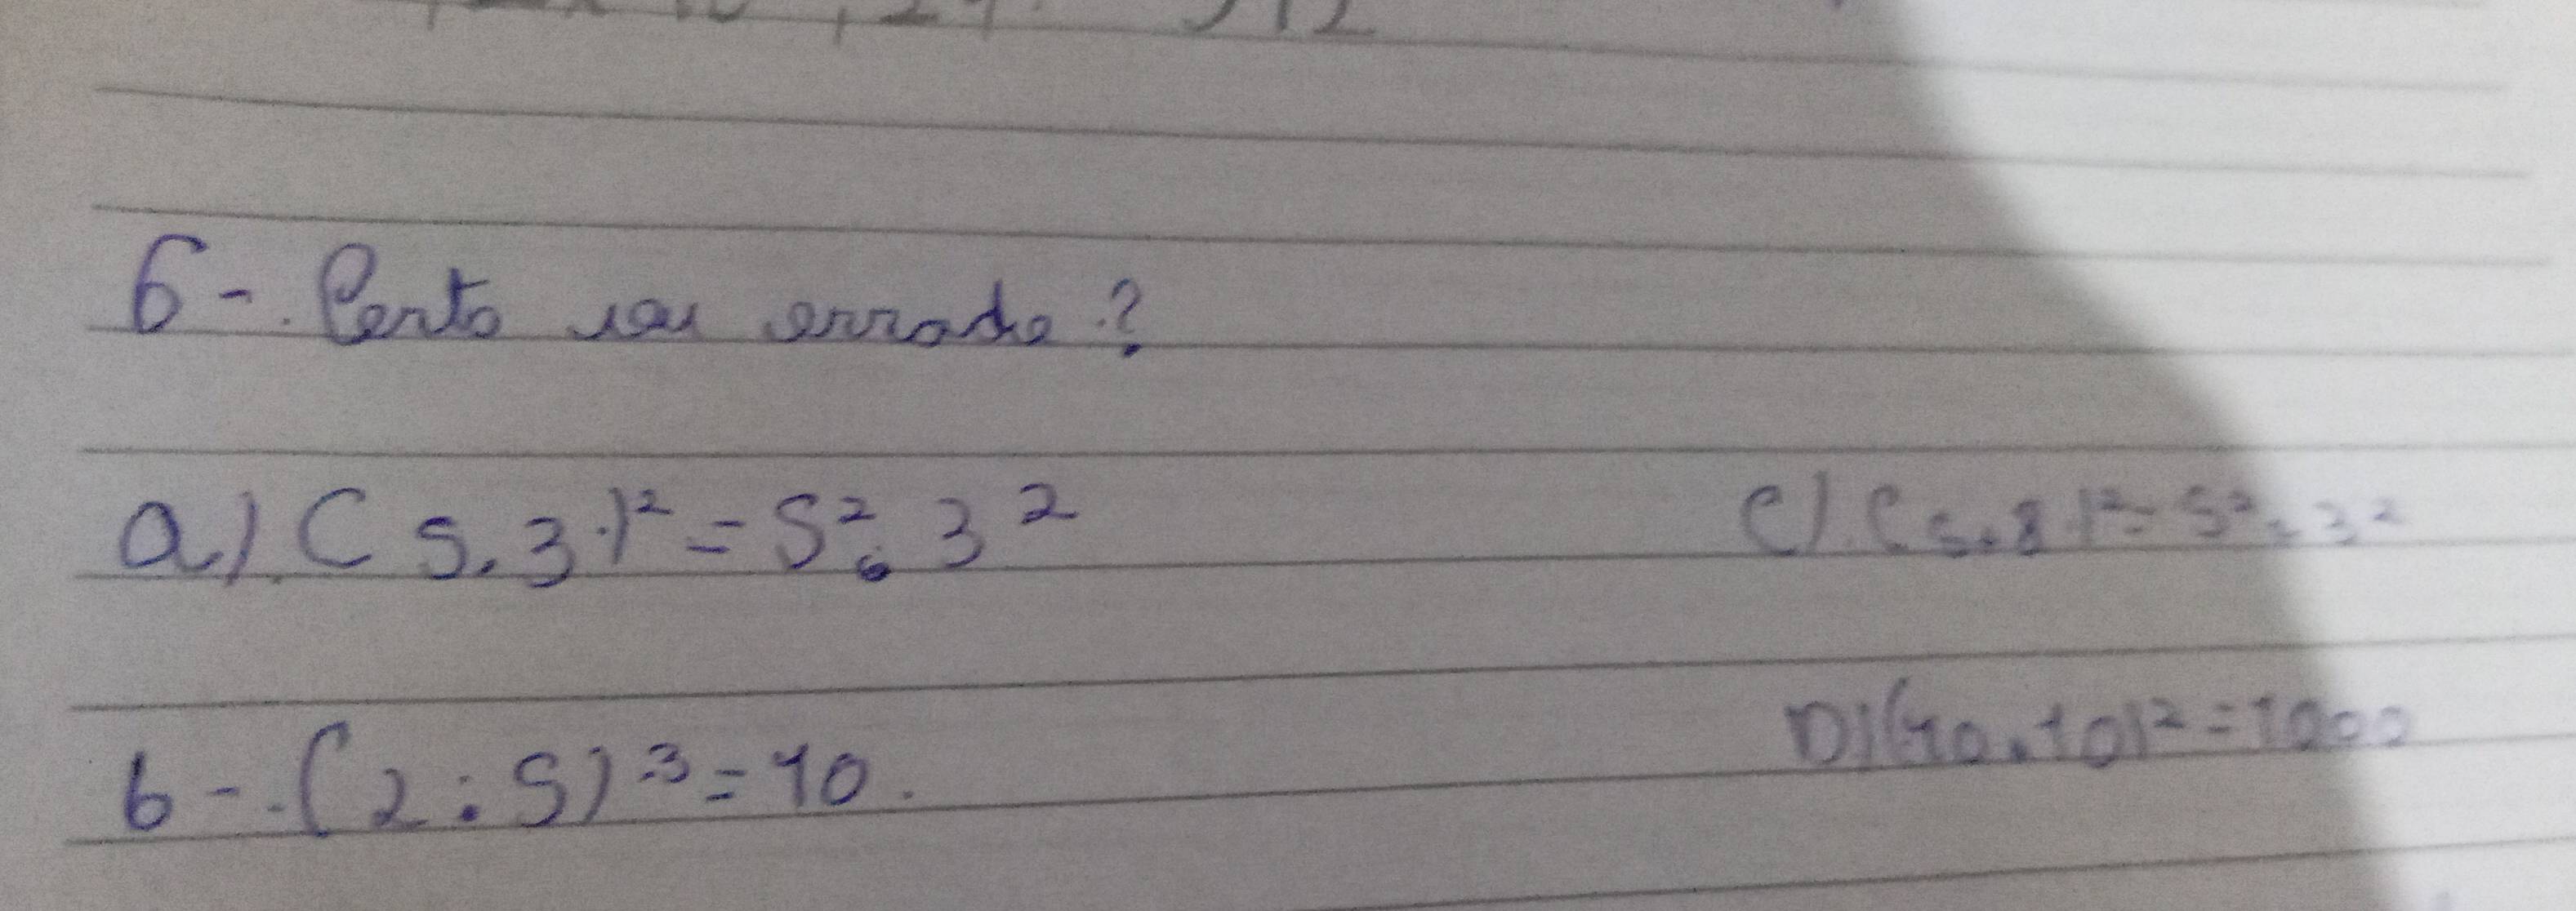 6-. Certo ou errado?
a) (5.3)² = 5². 3²
C) (5.8)² = 5². 3²
b-. (2:5)³ = 10.
D) (10.10)² = 1000